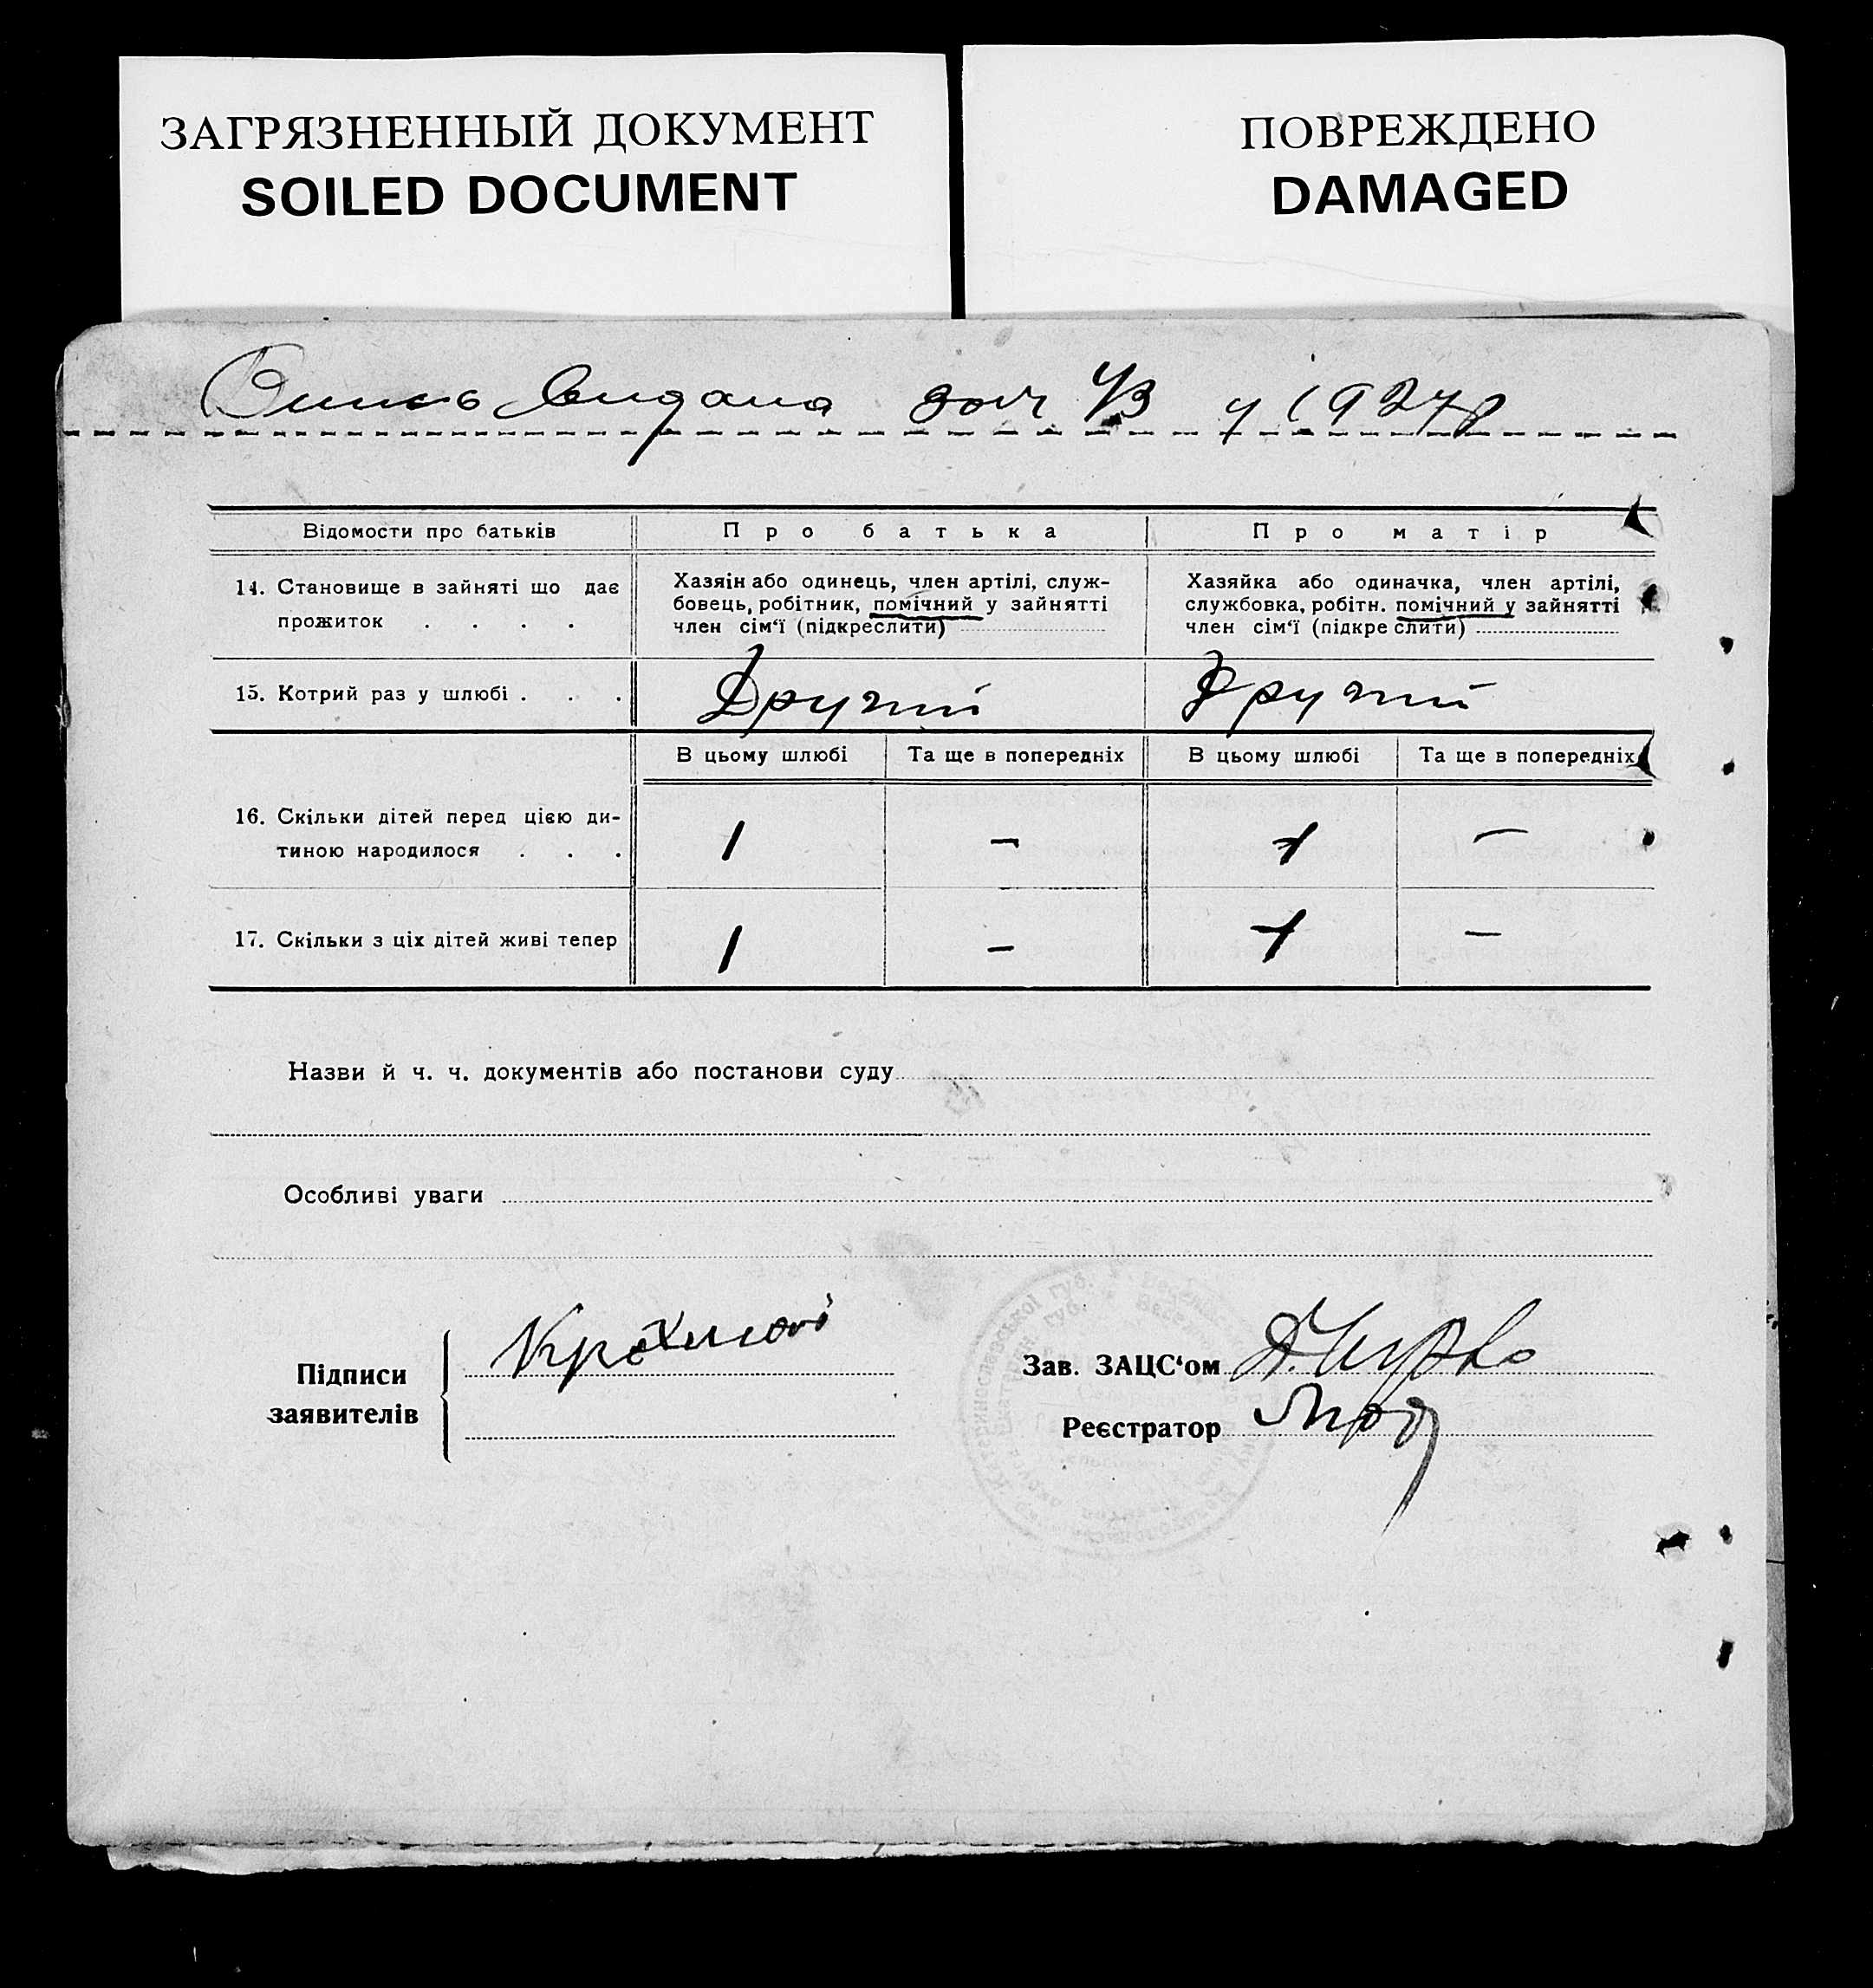 ЗАГРЯЗНЕННЫЙ ДОКУМЕНТ
SOILED DOCUMENT
ПОВРЕЖДЕНО
DAMAGED
видана 4/3 у 1927 р
Відомости про батьків
Про батька
Про матір
14. Становище в зайняті що дає
прожиток . . . .
Хазяін або одинець, член артілі, служ-
бовець, робітник, помічний у зайнятті
член сім‘ї (підкреслити)
Хазяйка або одиначка, член артілі,
службовка, робітн. помічний у зайнятті
член сім‘ї (підкреслити)
15. Котрий раз у шлюбі . . .
Другий
Другий
В цьому шлюбі
Та ще в попередніх
В цьому шлюбі
Та ще в попередніх
16. Скільки дітей перед цією ди-
тиною народилося . . .
1
—
1
—
17. Скільки з ціх дітей живі тепер
1
—
1
—
Назви й ч. ч. документів або постанови суду
Особливі уваги
Підписи
заявителів
Зав. ЗАЦС‘ом
Реєстратор